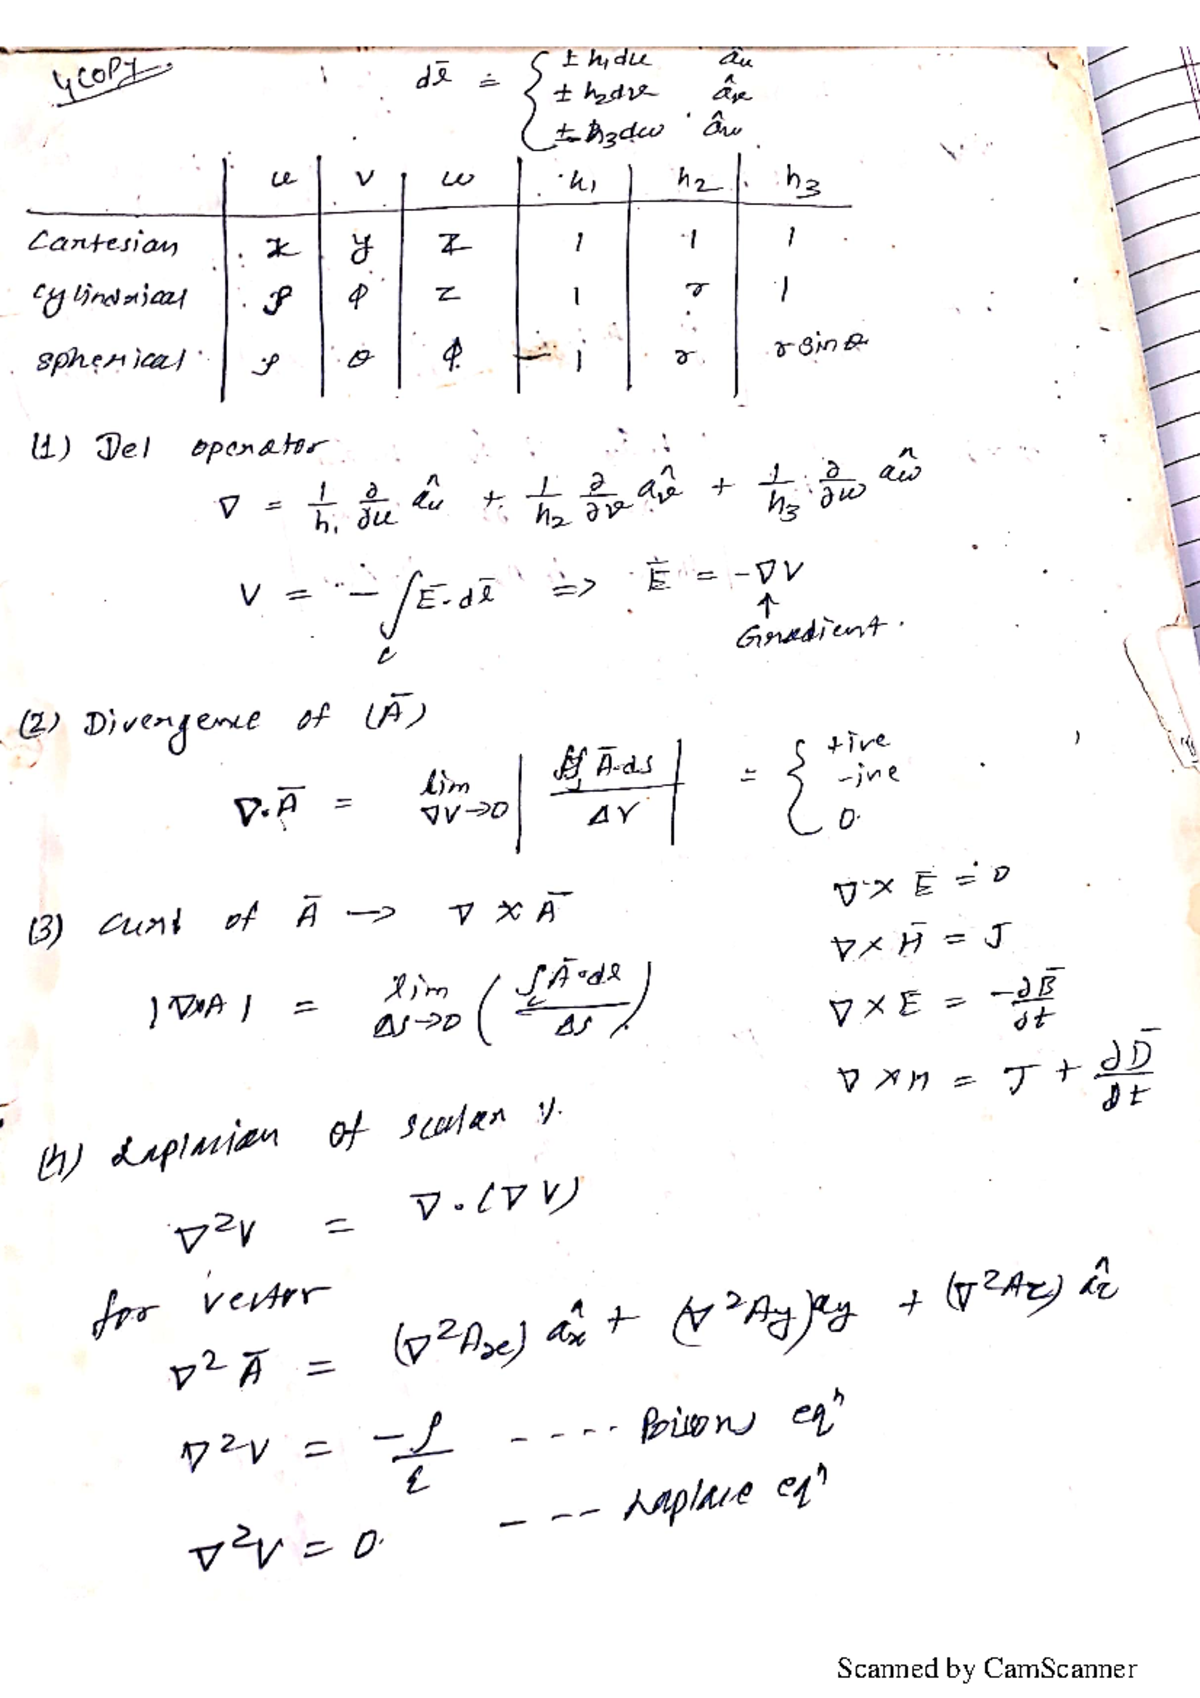 YCOPY
dl̄ = { ± h₁du âu
± h₂dv âv
± h₃dw âw
u v w h₁ h₂ h₃
Cartesian x y z 1 1 1
cylindrical ρ ϕ z 1 r 1
spherical ρ θ ϕ 1 r r sin θ
(1) Del operator
∇ = 1/h₁ ∂/∂u âu + 1/h₂ ∂/∂v âv + 1/h₃ ∂/∂w âw
V = - ∫c Ē·dl̄ => Ē = -∇V
↑
Gradient.
(2) Divergence of (Ā)
∇·Ā = lim ∇V→0 | ∯ Ā·ds / ΔV | = { +ive
-ive
0.
(3) Curl of Ā → ∇ × Ā
∇ × Ē = 0
∇ × H̄ = J
|∇×A| = lim Δs→0 ( ∫c Ā·dl / Δs )
∇ × E = -∂B̄/∂t
∇ × H = J + ∂D̄/∂t
(4) Laplacian of scalar V.
∇²V = ∇·(∇V)
for vector
∇²Ā = (∇²Ax) âx + (∇²Ay) ay + (∇²Az) âz
∇²V = -ρ/ε ---- Poison eqⁿ
∇²V = 0. --- Laplace eqⁿ
Scanned by CamScanner